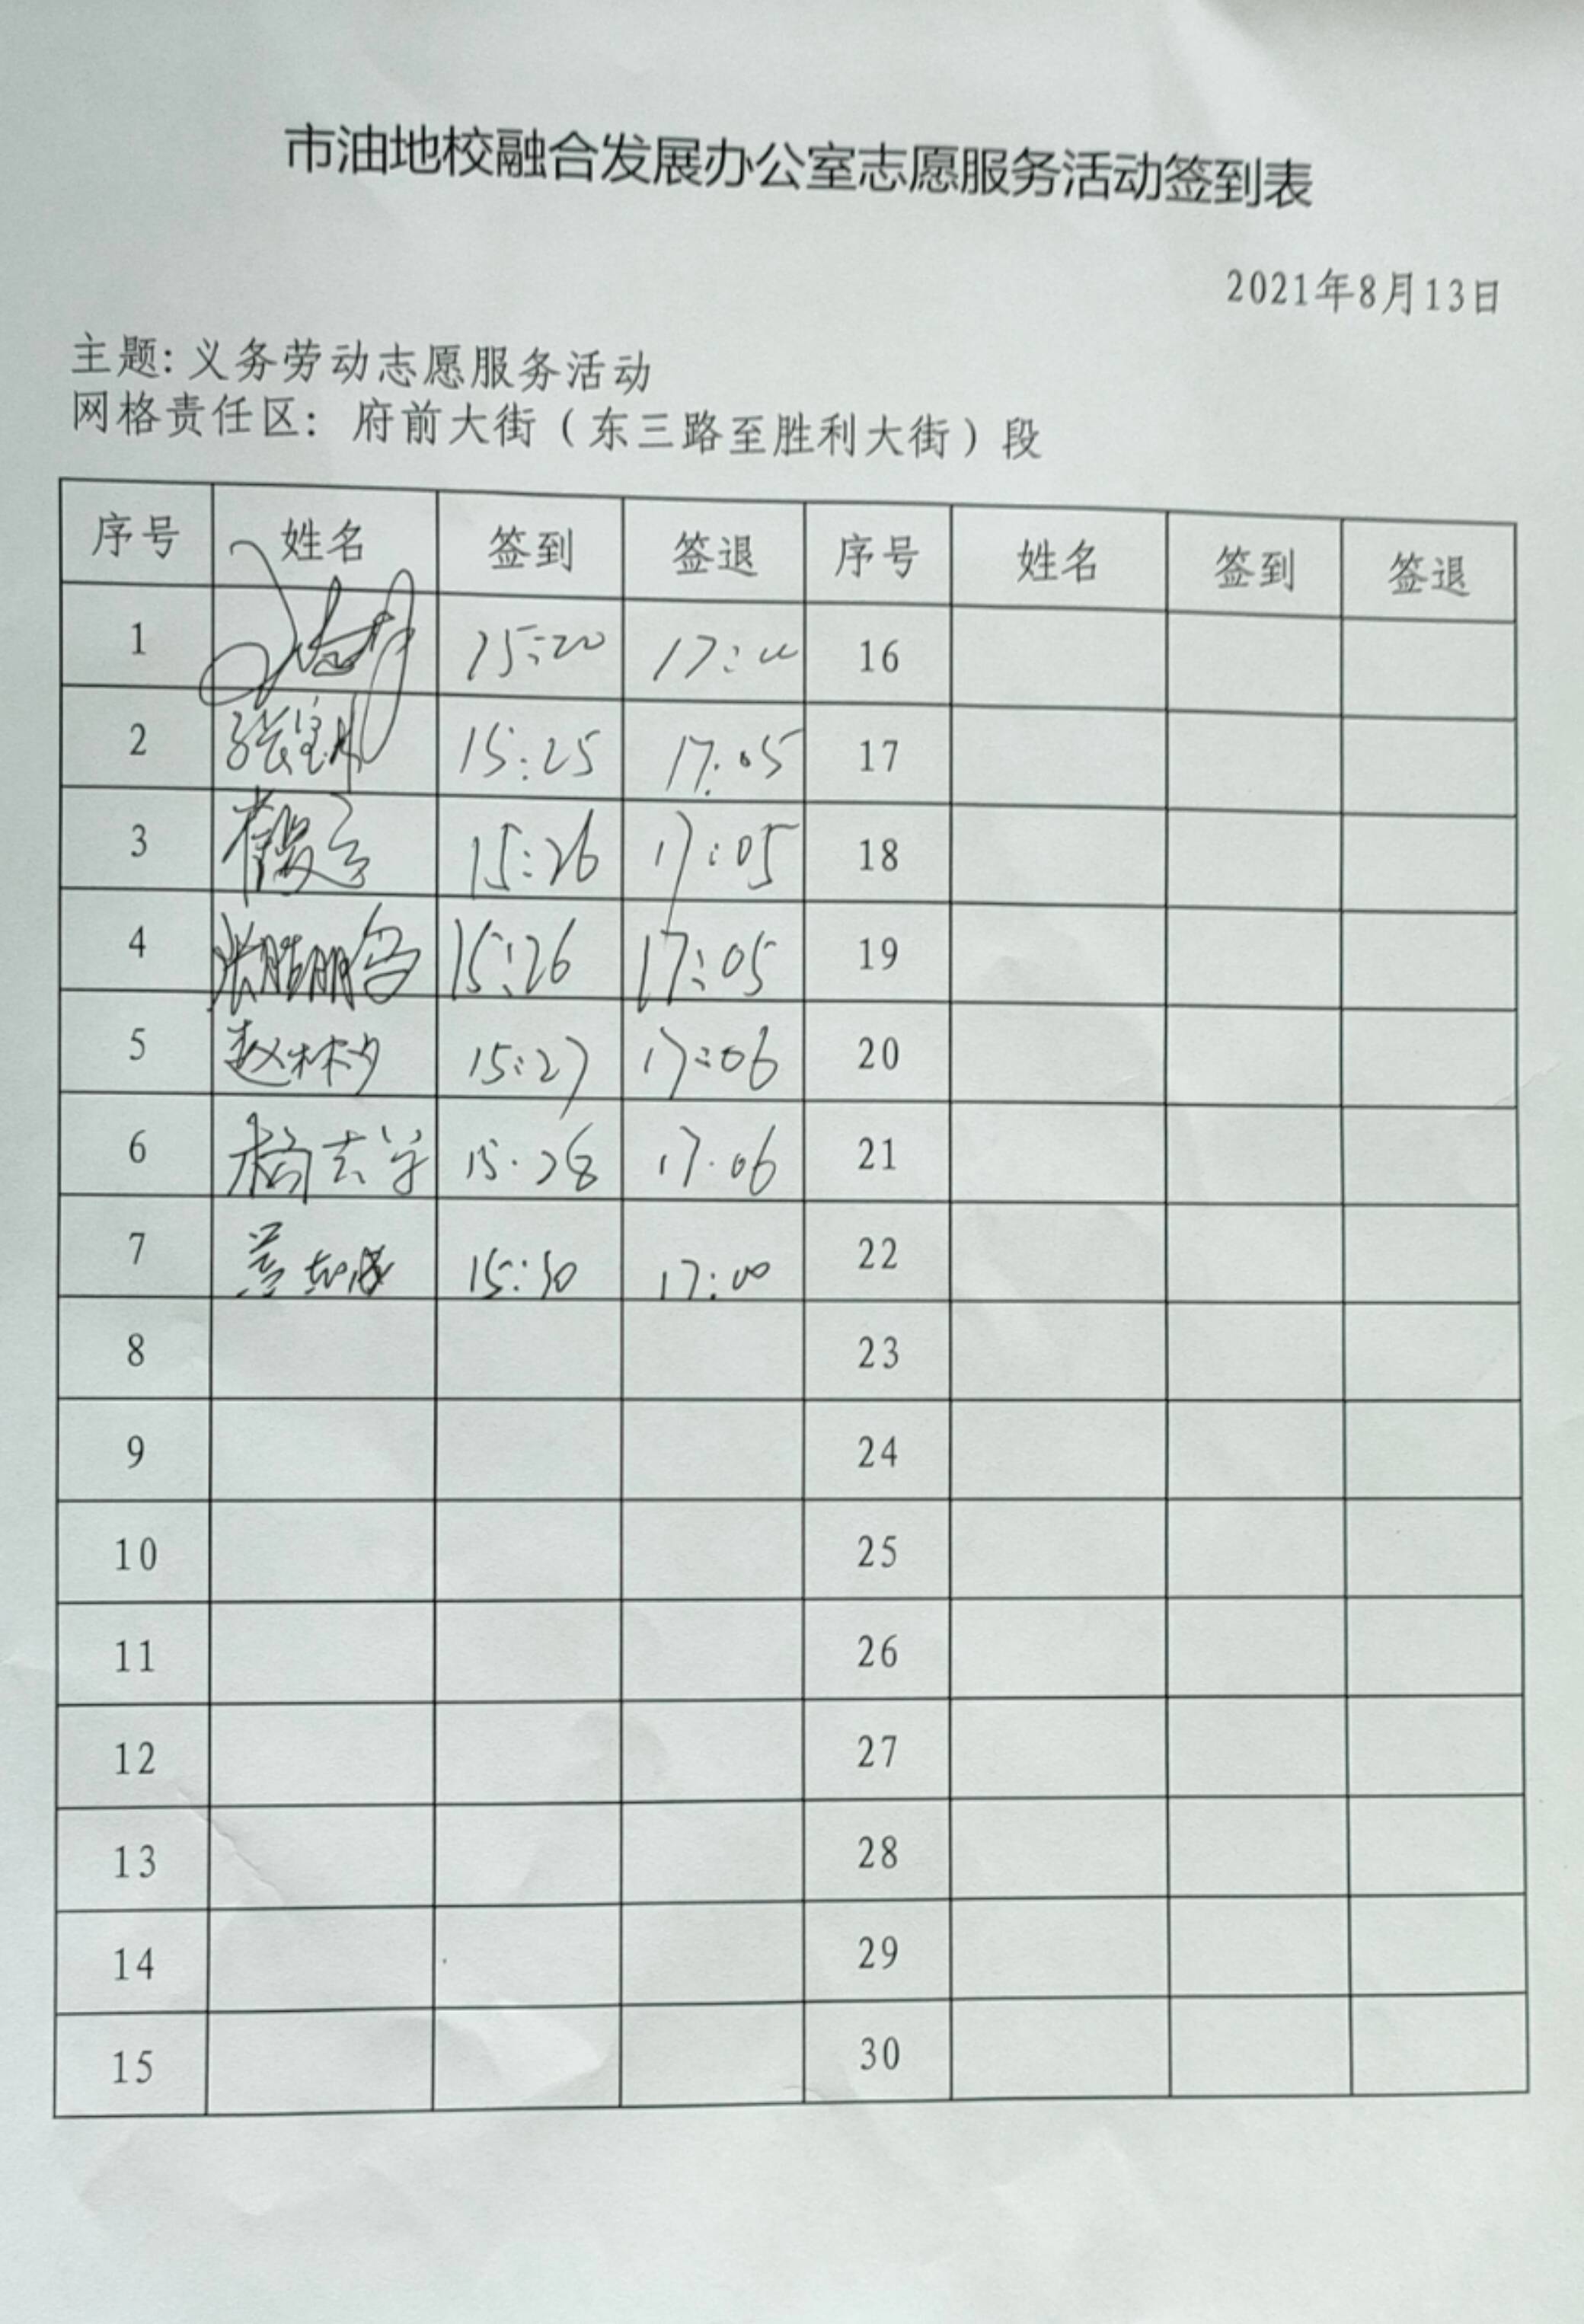 市油地校融合发展办公室志愿服务活动签到表
2021年8月13日
主题：义务劳动志愿服务活动
网格责任区：府前大街（东三路至胜利大街）段
序号 姓名 签到 签退 序号 姓名 签到 签退
1 15:20 17:00 16
2 张宝 15:25 17:05 17
3 15:26 17:05 18
4 张 15:26 17:05 19
5 赵林 15:27 17:06 20
6 杨志学 15:28 17:06 21
7 15:30 17:00 22
8 23
9 24
10 25
11 26
12 27
13 28
14 29
15 30